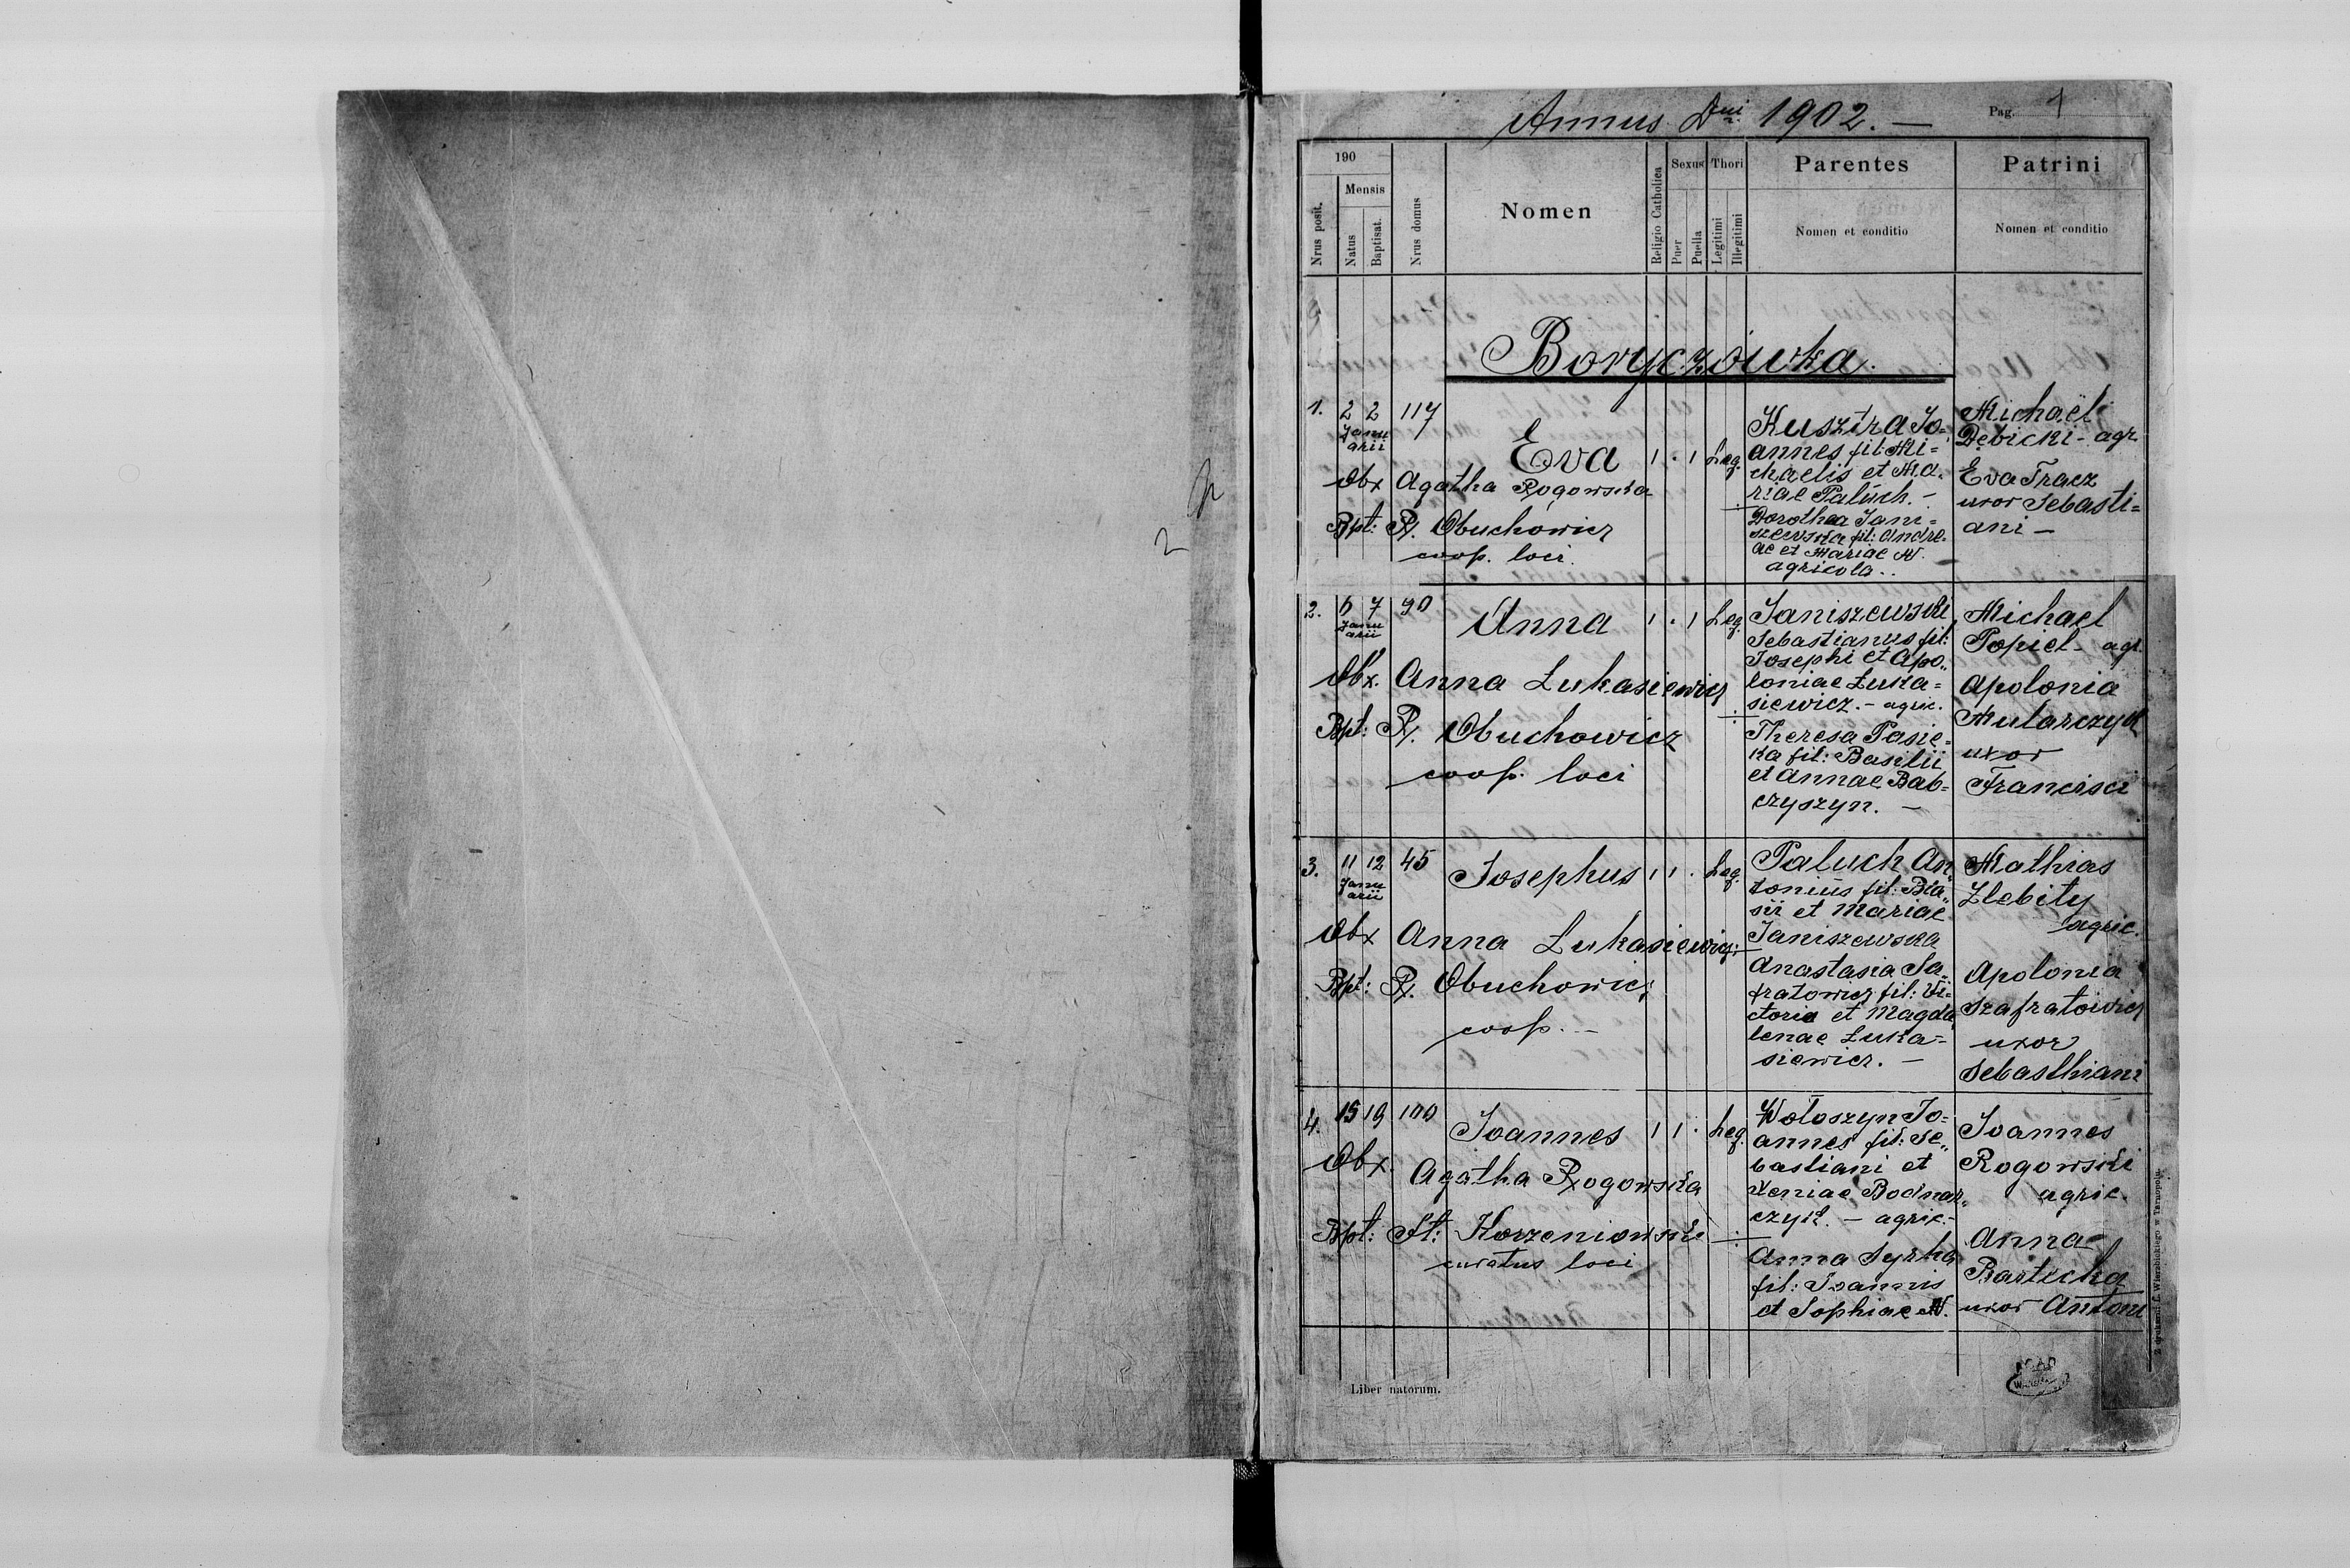 Annus Dni 1902. —
Pag. 1
190
Mensis
Nrus posit.
Natus
Baptisat.
Nrus domus
Nomen
Religio Catholica
Sexus
Puer
Puella
Thori
Legitimi
Illegitimi
Parentes
Nomen et conditio
Patrini
Nomen et conditio
Boryczówka.
1. 2 2 117
Janu
arii
Eva 1 · 1 Leg.
Obx Agatha Rogowska
Bpt: R. Obuchowicz
coop. loci.
Kusztra Jo=
annes fil: Mi=
chaelis et Ma=
riae Paluch. –
Dorothea Jani=
szewska fil: Andre=
ae et Mariae N.
agricola..
Michaël
Dębicki - agr.
Eva Tracz
uxor Sebasti=
ani –
2. 6 7 90
Janu
arii
Anna 1 · 1 Leg.
Obx. Anna Łukasiewicz
Bpt: R. Obuchowicz
coop. loci
Janiszewski
Sebastianus fil:
Josephi et Apo„
loniae Łuka=
siewicz. – agric.
Theresa Pasie=
ka fil: Basilii
et Annae Bab=
czyszyn. –
Michael
Popiel - agr.
Apolonia
Mularczyk
uxor
Francisci
3. 11 12 45
Janu
arii
Josephus 1 1 · Leg.
Obx Anna Łukasiewicz
Bpt: R. Obuchowicz
coop. –
Paluch An„
tonius fil: Bla„
sii et Mariae
Janiszewska
Anastasia Sa„
fratowicz fil: Vi=
ctoria et Magda
lenae Łuka=
siewicz. –
Mathias
Zlebity
agric.
Apolonia
Szafratowicz
uxor
Sebasthiani
4. 15 19 100
Joannes 1 1 · Leg.
Obx.
Agatha Rogowska
Bpt: St: Korzeniowski
curatus loci
Wołoszyn Jo=
annes fil: Se„
bastiani et
Xeniae Bodnar„
czyk. – agric.-
Anna Syrka
fil: Joannis
et Sophiae N.
Joannes
Rogowski
agric.
Anna
uxor Antoni
Liber natorum.
Z drukarni L. Wierzbickiego w Tarnopolu.